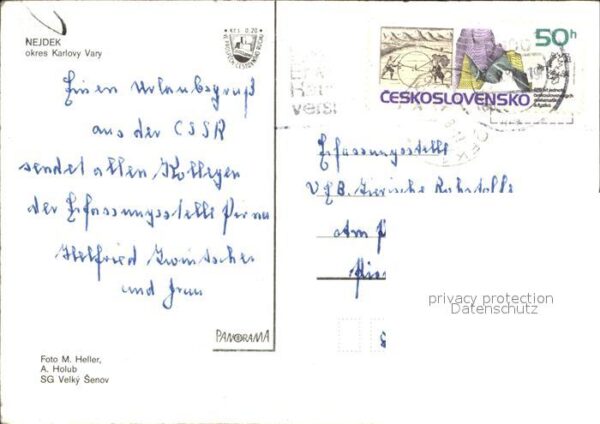 NEJDEK
okres Karlovy Vary
Kčs 0,20
Einen Urlaubsgruß
aus der CSSR
sendet allen Kollegen
der Erfassungsstelle Pirna
Helfried
und Frau
PANORAMA
Foto M. Heller,
A. Holub
SG Velký Šenov
50h
ČESKOSLOVENSKO
Erfassungsstelle
VEB Tierische Rohstoffe
Am
privacy protection
Datenschutz